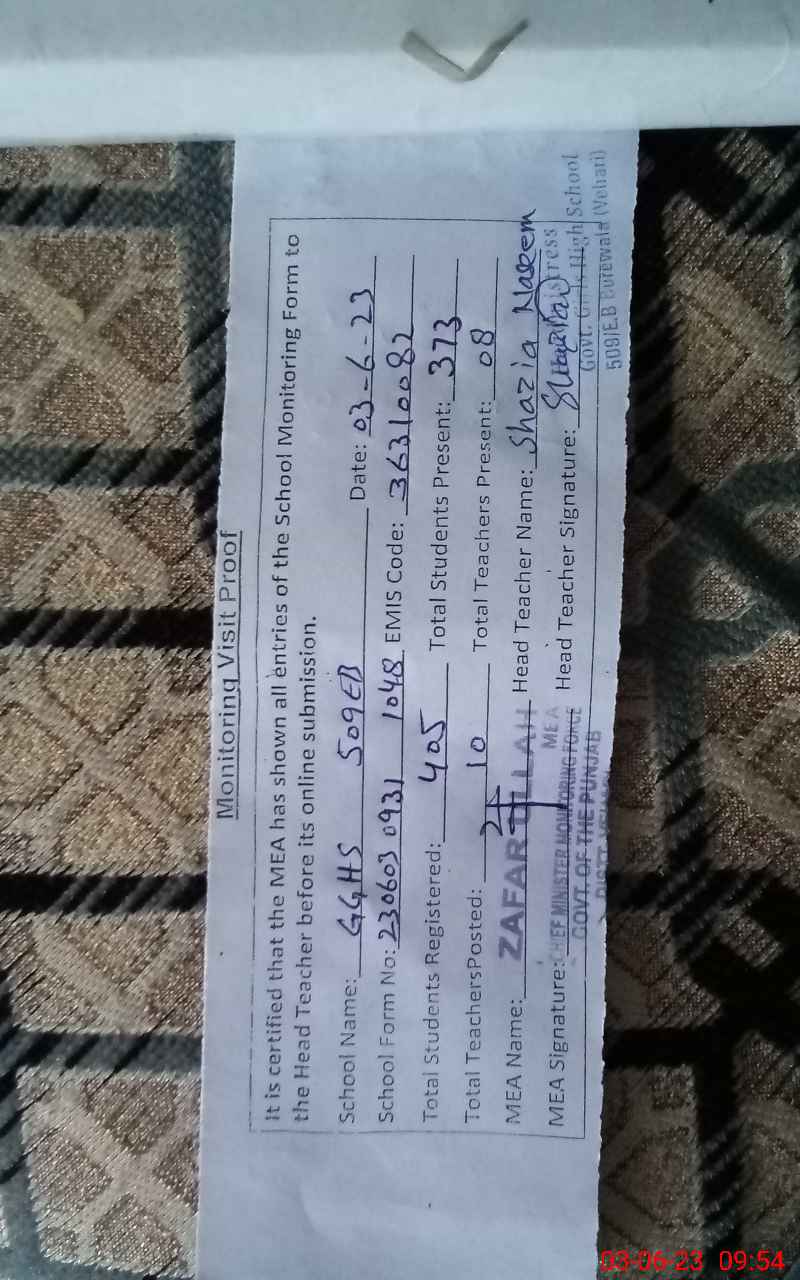 Monitoring Visit Proof
It is certified that the MEA has shown all entries of the School Monitoring Form to
the Head Teacher before its online submission.
School Name: GGHS 509EB Date: 03-6-23
School Form No: 230603 0931 1048 EMIS Code: 36310082
Total Students Registered: 405 Total Students Present: 373
Total TeachersPosted: 10 Total Teachers Present: 08
MEA Name: ZAFAR ULLAH Head Teacher Name: Shazia Naeem
MEA
MEA Signature: CHIEF MINISTER MONITORING FORCE Head Teacher Signature:
GOVT. OF THE PUNJAB
Govt. Girls High School
509/E.B Burewala (Vehari)
03-06-23 09:54